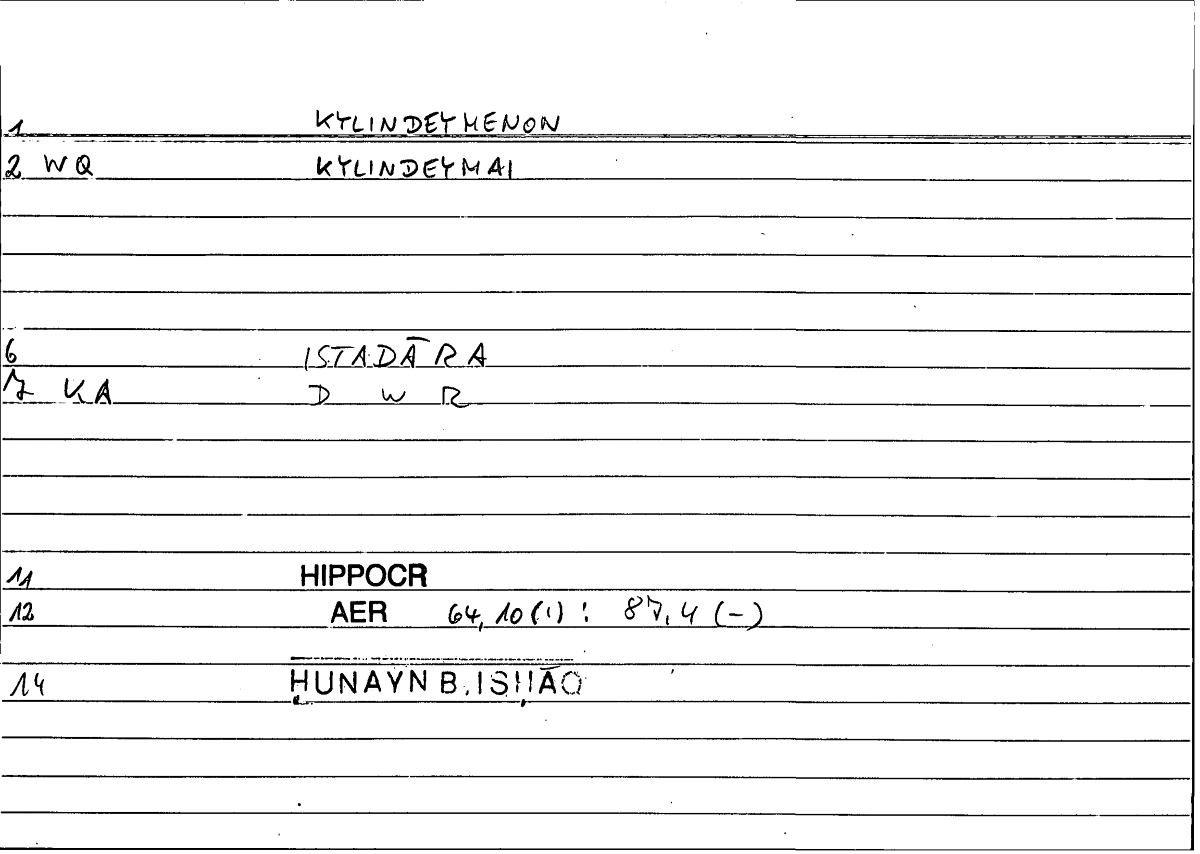 1 KYLINDEYMENON
2 WQ KYLINDEYMAI
6 ISTADĀRA
7 KA D W R
11 HIPPOCR
12 AER 64,10(1) : 87,4 (-)
14 ḤUNAYN B. ISḤĀQ